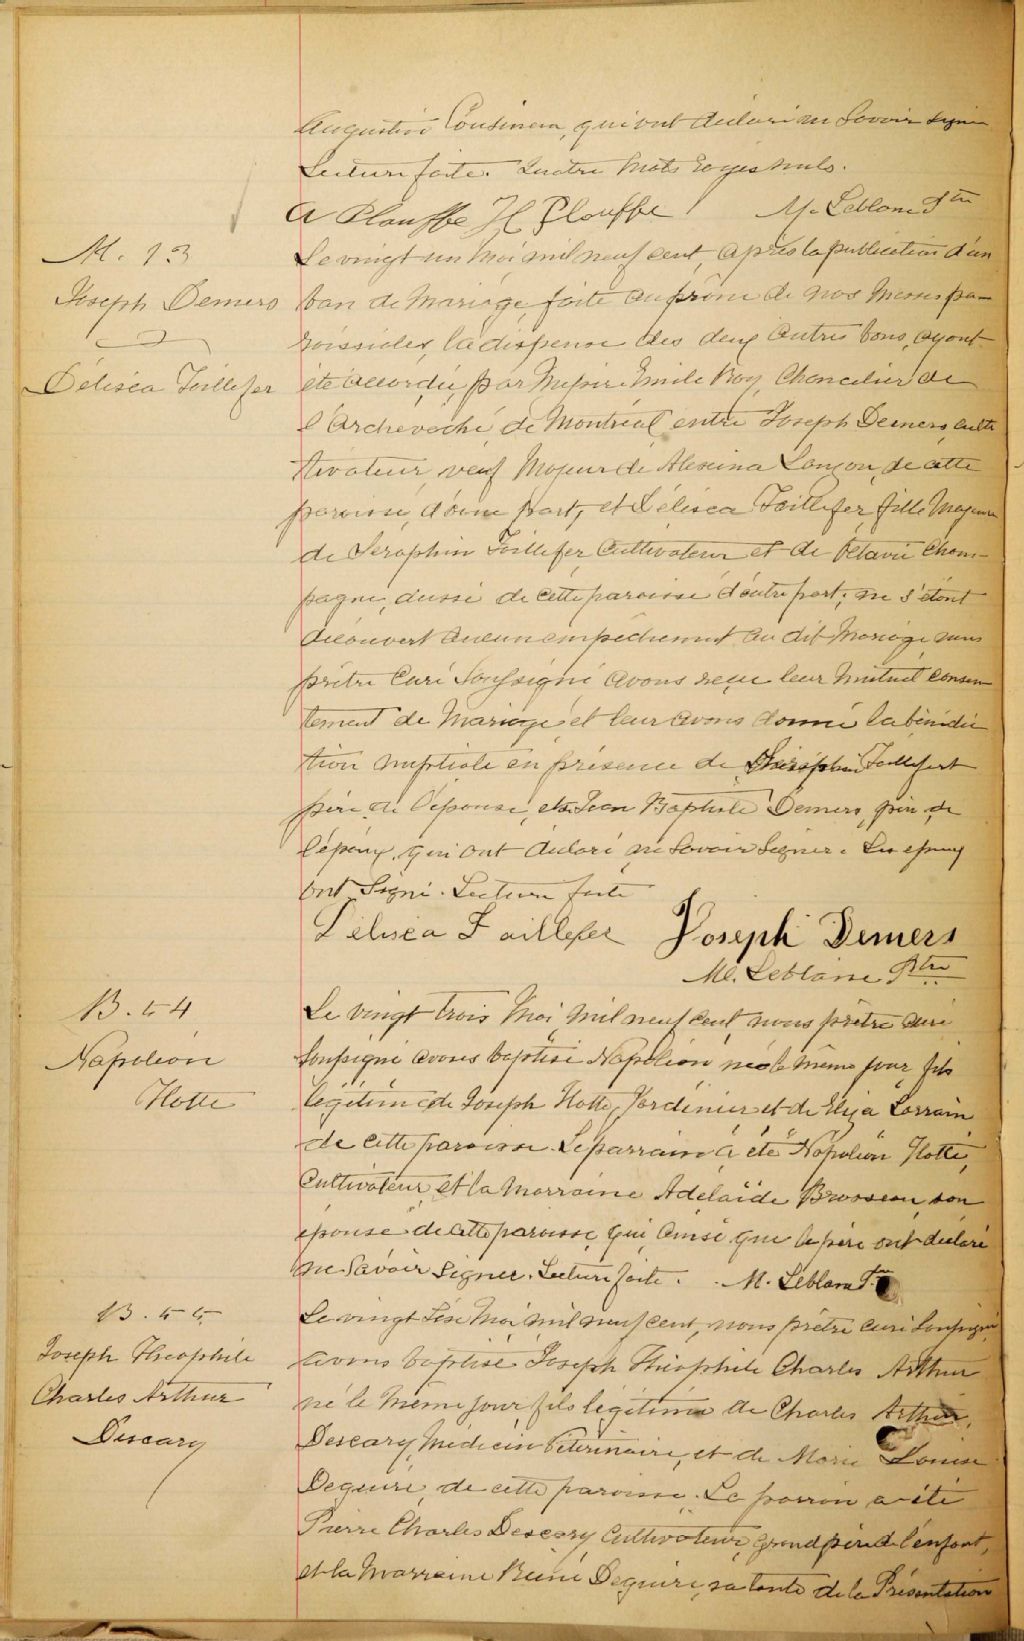 Augustin Cousineau, qui ont déclaré ne savoir signer
Lecture faite. Quatre mots rayés nuls.
A Plouffe H Plouffe M. Leblanc Ptre
M. 13
Joseph Demers
Délisca Taillefer
Le vingt un Mai mil neuf cent, après la publication d'un
ban de Mariage, faite au prône de nos Messes pa-
roissiales, la dispense des deux autres bans, ayant
été accordée, par Messire Emile Roy, Chancelier de
l'Archevêché de Montréal entre Joseph Demers, culti
tivateur, veuf Majeur de Alexina Lauzon, de cette
paroisse, d'une part, et Délisca Taillefer, fille Majeure
de Séraphin Taillefer, Cultivateur et de Octavie Cham-
pagne, aussi de cette paroisse d'autre part; ne s'étant
découvert aucun empêchement au dit Mariage nous
prêtre Curé Soussigné avons reçu leur mutuel consen
tement de Mariage et leur avons donné la bénédic
tion nuptiale en présence de Séraphin Taillefert
père de l'épouse, et Jean Baptiste Demers, père de
l'époux, qui ont déclaré ne savoir signer. Les époux
ont Signé. Lecture faite
Délisca Taillefer Joseph Demers
M. Leblanc Ptre
B. 54
Napoléon
Hotte
Le vingt trois Mai, mil neuf cent, nous prêtre curé
Soussigné avons baptisé Napoléon né le même jour fils
légitime de Joseph Hotte, Jardinier et de Eliza Lorrain
de cette paroisse. Le parrain a été Napoléon Hotte,
Cultivateur, et la Marraine Adélaïde Brosseau, son
épouse de cette paroisse, qui ainsi que le père ont déclaré
ne Savoir Signer. Lecture faite. M. Leblanc Ptre
B. 55
Joseph Théophile
Charles Arthur
Descary
Le vingt Six Mai mil neuf cent, nous prêtre curé Soussigné
avons baptisé Joseph Théophile Charles Arthur
né le même jour fils légitime de Charles Arthur,
Descary, Médecin Vétérinaire, et de Marie Louise
Deguire, de cette paroisse. Le parrain a été
Pierre Charles Descary Cultivateur, grand père de l'enfant,
et la Marraine Deguire, sa tante de la Présentation